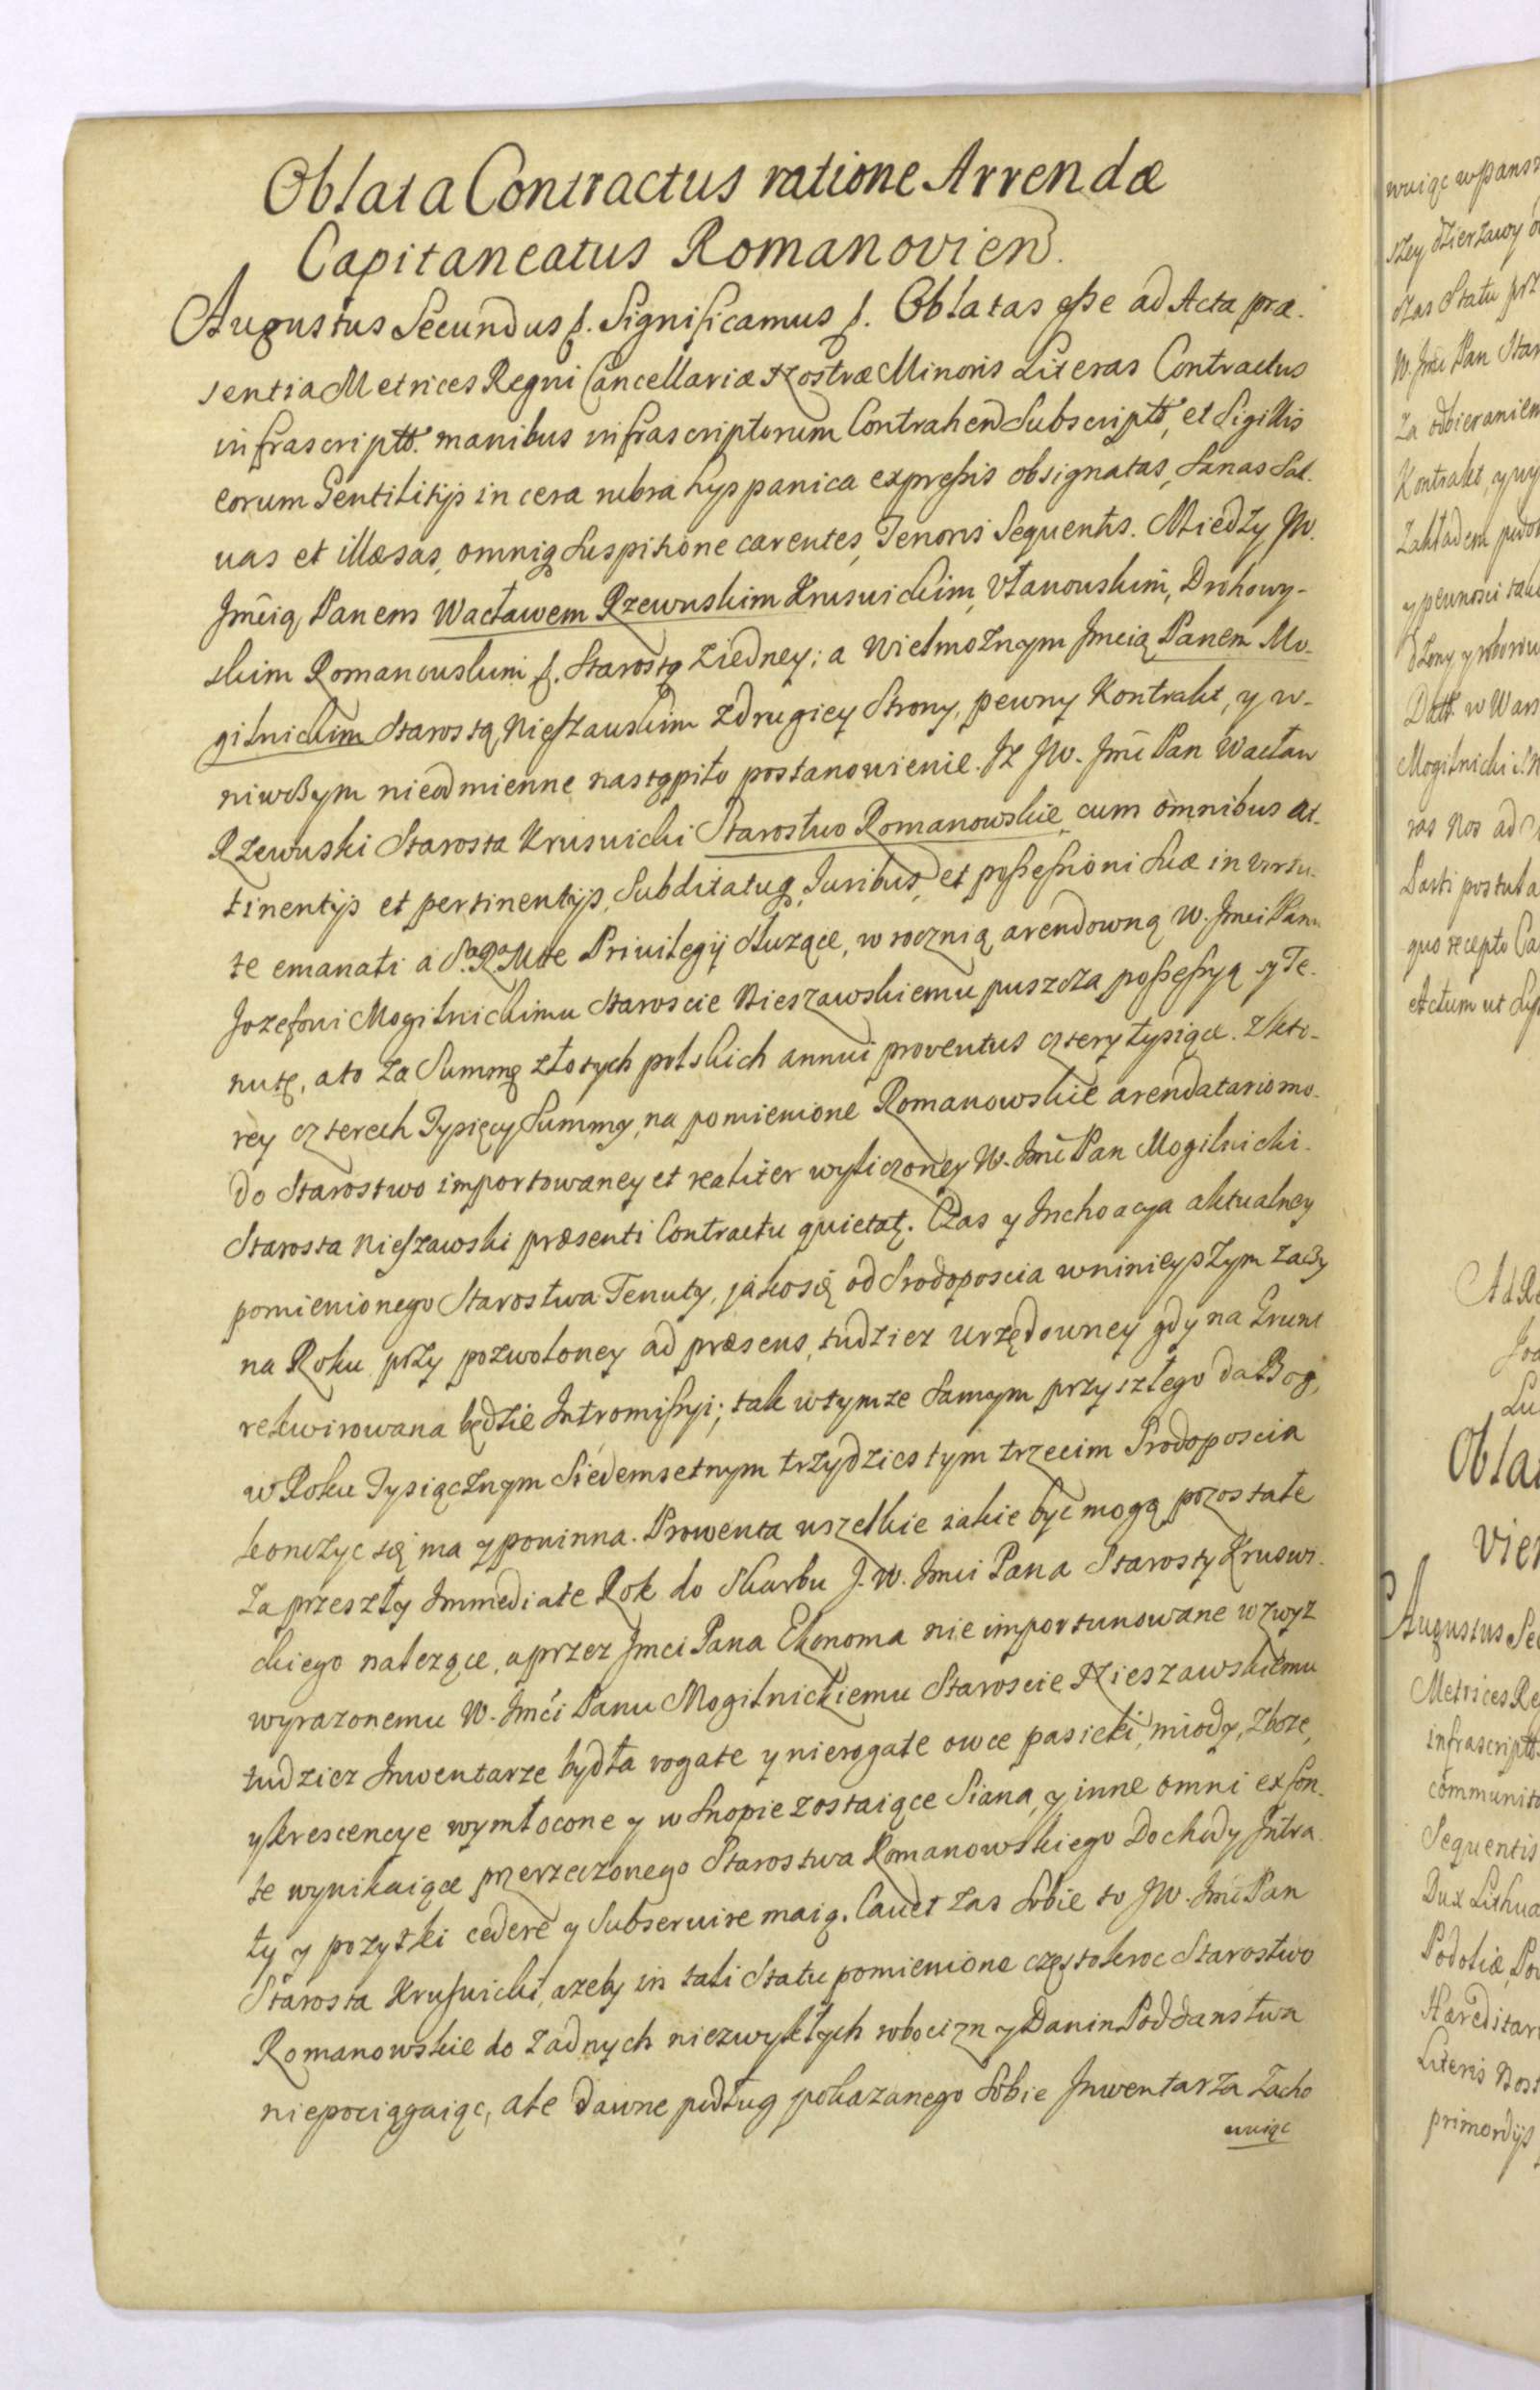 Oblata Contractus ratione Arrendæ
Capitaneatus Romanovien.
Augustus Secundus f. Significamus f. Oblatas esse ad Acta præ.
sentia Metrices Regni Cancellariæ Nostræ Minoris Literas Contractus
infrascriptt. manibus infrascriptorum Contrahen Subscriptt, et Sigillis
eorum Gentilitijs in cera rubra hyspanica expressis obsignatas, Sanas Sal.
uas et illæsas, omniq suspitione carentes, Tenoris Sequentis. Miedzy JW.
Jmcią Panem Wacławem Rzewuskim Kruswickim, Ułanowskim, Drohowy-
skim Romanowskim f. Starostą ziedney; a Wielmożnym Jmcią Panem Mo-
gilnickim Starostą Nieszauskim zdrugiey Strony, pewny Kontrakt, y w-
niwczym nieodmienne nastąpiło postanowienie. Iż JW. Jmć Pan Wacław
Rzewuski Starosta Kruswicki Starostwo Romanowskie, cum omnibus at-
tinentijs et pertinentijs, Subditatuq, Juribus, et possessioni Suæ in virtu-
te emanati a S.R.Mtte Privilegij służące, w roczną arendowną W. Jmci Panu
Jozefowi Mogilnickimu Staroscie Nieszawskiemu puszcza possessyą y Te.
nutę, a to za Summę złotych polskich annui proventus cztery tysiące. Zkto-
rey czterech Tysięcy Summy, na pomienione Romanowskie arendatario mo.
do Starostwo importowaney et realiter wyliczoney W. Jmć Pan Mogilnicki.
Starosta Nieszawski præsenti Contractu quietat. Czas y Inchoacya aktualney
pomienionego Starostwa Tenuty, jako się od Srodoposcia wninieyszym zaczy
na Roku przy pozwoloney ad præsens, tudziez urzędowney gdy na Grunt
rekwirowana będzie Intromissyi; tak wtymze Samym przyszłego da Bog,
w Roku Tysiącznym Siedemsetnym trzydziestym trzecim Srodoposcia
konczyc się ma y powinna. Prowenta wszelkie jakie byc mogą pozostałe
za przeszły Immediate Rok do Skarbu J.W. Jmci Pana Starosty Kruswi-
ckiego należące, a przez Jmci Pana Ekonoma nie importunowane wzwyz
wyrazonemu W. Jmći Panu Mogilnickiemu Staroscie Nieszawskiemu
tudziez Inwentarze bydła rogate y nierogate owce pasieki, miody, zboże,
y krescencye wymłocone y w Snopie zostaiące Siana, y inne omni ex fon-
te wynikaiące przerzeczonego Starostwa Romanowskiego Dochody Intra
ty y pozytki cedere y Subservire maią. Cavet zas Sobie to JW. Jmć Pan
Starosta Kruswicki, azeby in tali Statu pomienione częstokroc Starostwo
Romanowskie do żadnych niezwykłych robocizn y Danin Poddanstwa
niepociągaiąc, ale dawne podług pokazanego Sobie Inwentarza zacho
wuiąc
wuiąc wpansz
szey dzierzawy
czas Statu prz
W. Jmć Pan Star
za odbieraniem
Kontrakt, y wy
zakładem
y pewnosci
Datt. w Wars
Mogilnicki
ras Nos ad
Parti postula
quo recepto Ca
Actum ut Sup
Ad Re
Lu
Obla
vien
Augustus Se
Metrices Re
infrascriptt.
communit
Sequentis
Dux Lithua
Podoliæ, Po
Hæreditar
Literis Nost
primordijs